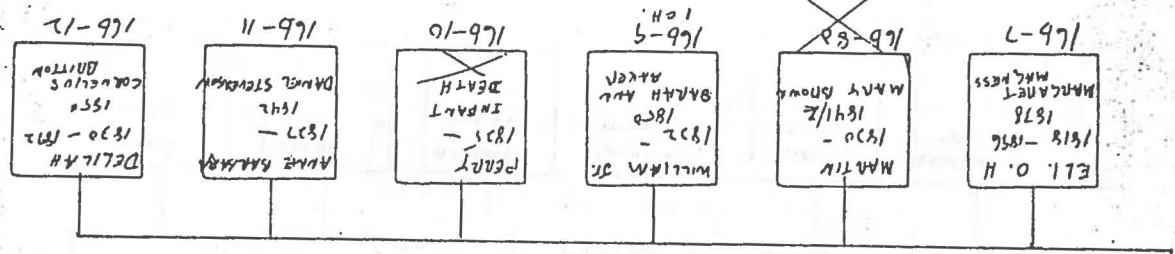 ELI. O. H
1818 - 1896
1878
MARGARET
MAGNESS
16b-7
MARTIN
1830 -
1841/2
MARY BROWN
WILLIAM JR.
1832 -
1850
SARAH ANN
AKER
16b-9
1 CH.
PERRY
1835 -
INFANT
DEATH
16b-10
BARBARA
1837 -
1842
DANIEL STEVENSON
16b-11
DELILAH
1830 - 1892
1850
CORNELIUS
BRITTON
16b-12